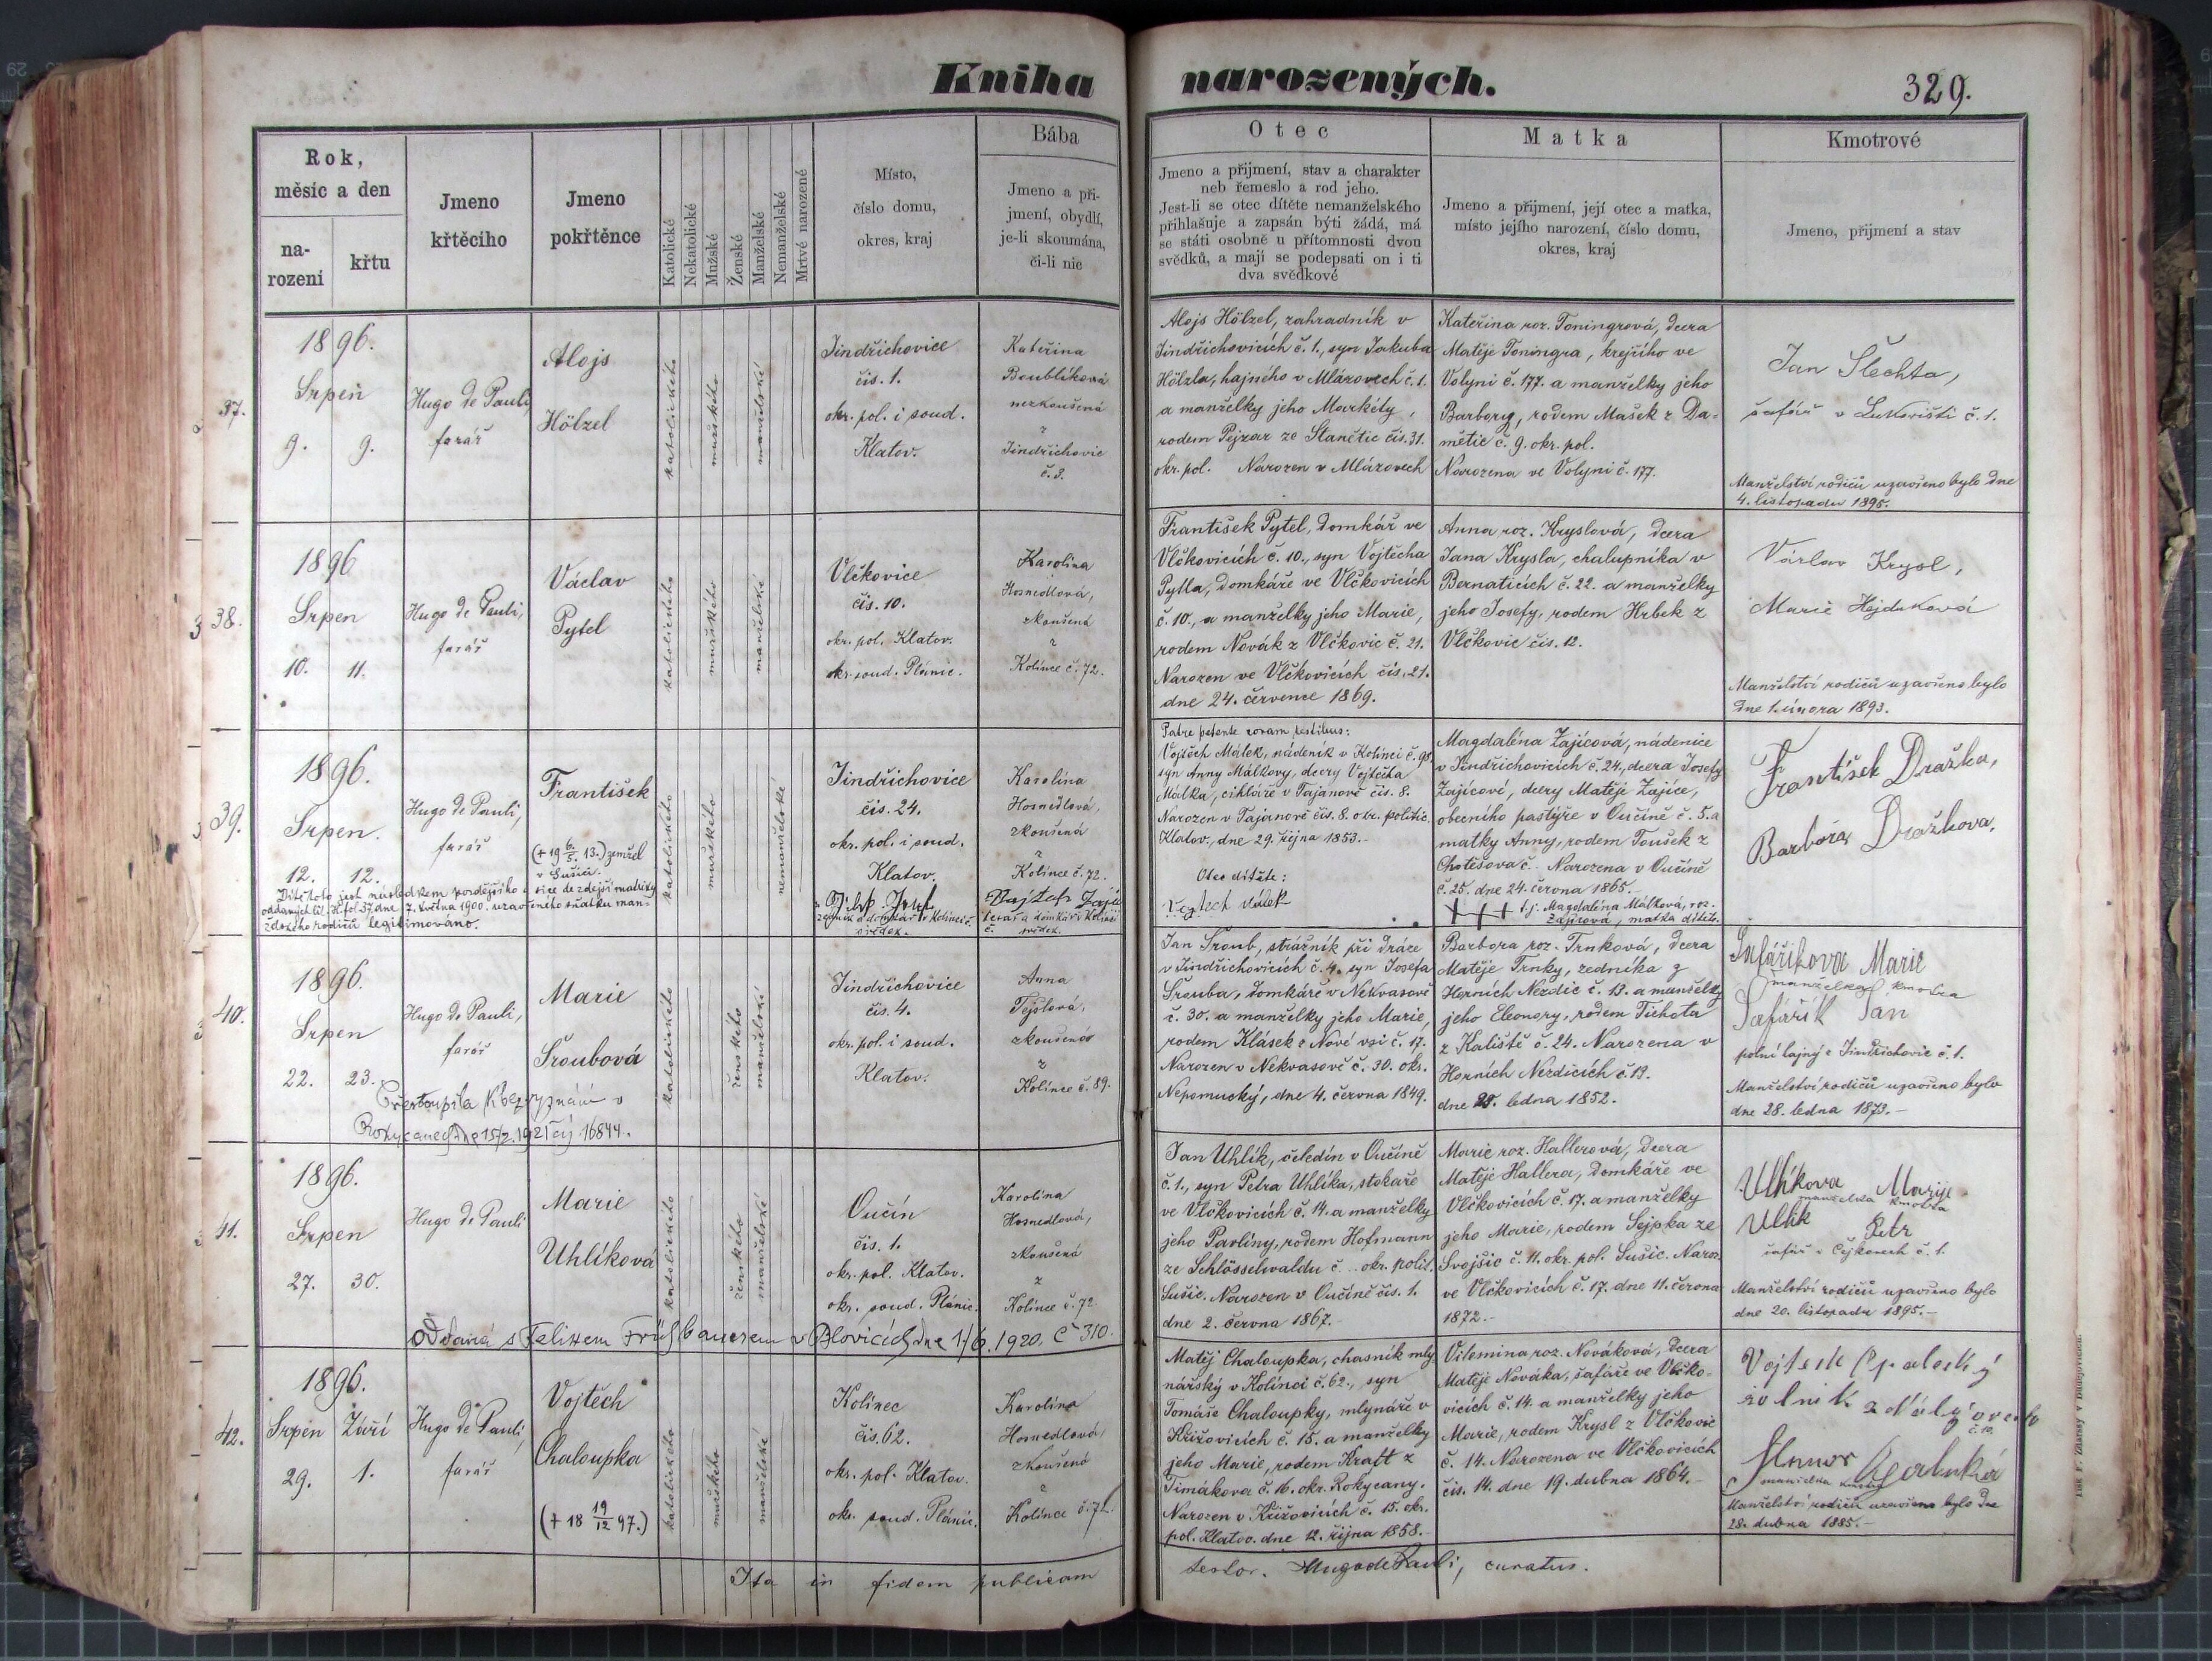 Kniha narozených.
329.
Rok, měsíc a den
narození
křtu
Jmeno křtěcího
Jmeno pokřtěnce
Katolické
Nekatolické
Mužské
Ženské
Manželské
Nemanželské
Mrtvé narozené
Místo,
číslo domu,
okres, kraj
Bába
Jmeno a při-
jmení, obydlí,
je-li skoumána,
či-li nic
Otec
Jmeno a přijmení, stav a charakter
neb řemeslo a rod jeho.
Jest-li se otec dítěte nemanželského
přihlašuje a zapsán býti žádá, má
se státi osobně u přítomnosti dvou
svědků, a mají se podepsati on i ti
dva svědkové
Matka
Jmeno a přijmení, její otec a matka,
místo jejího narození, číslo domu,
okres, kraj
Kmotrové
Jmeno, přijmení a stav
37.
1896.
Srpen
9. 9.
Hugo de Pauli,
farář
Alojs
Hölzel
katolického
mužského
manželské
Jindřichovice
čís. 1.
okr. pol. i soud.
Klatov.
Kateřina
Boublíková
nezkoušená
z
Jindřichovic
č. 3.
Alojs Hölzel, zahradník v
Jindřichovicích č. 1., syn Jakuba
Hölzla, hajného v Mlázovech č. 1.
a manželky jeho Markéty,
rodem Pejzar ze Stanětic čís. 31.
okr. pol. Narozen v Mlázovech
Kateřina roz. Toningrová, dcera
Matěje Toningra, krejčího ve
Volyni č. 177. a manželky jeho
Barbory, rodem Mašek z Da-
mětic č. 9. okr. pol.
Narozena ve Volyni č. 177.
Jan Šlechta,
šafář v Lukovišti č. 1.
Manželství rodičů uzavřeno bylo dne
4. listopadu 1895.
38.
1896
Srpen
10. 11.
Hugo de Pauli,
farář
Václav
Pytel
katolického
mužského
manželské
Vlčkovice
čís. 10.
okr. pol. Klatov.
okr. soud. Plánic.
Karolina
Hosnedlová,
zkoušená
z
Kolince č. 72.
František Pytel, domkář ve
Vlčkovicích č. 10., syn Vojtěcha
Pytla, domkáře ve Vlčkovicích
č. 10., a manželky jeho Marie,
rodem Novák z Vlčkovic č. 21.
Narozen ve Vlčkovicích čís. 21.
dne 24. července 1869.
Anna roz. Kryslová, dcera
Jana Krysla, chalupníka v
Bernaticích č. 22. a manželky
jeho Josefy, rodem Hrbek z
Vlčkovic čís. 12.
Václav Krysl,
Marie Hejduková
Manželství rodičů uzavřeno bylo
dne 1. února 1893.
39.
1896.
Srpen.
12. 12.
Hugo de Pauli,
farář
František
(+ 19 6/5. 13.) zemřel
v Sušici.
Dítě toto jest následkem pozdějšího
oddaných lit. H. fol. 37. dne 7. května 1900. uzavřeného sňatku man-
želského rodičů legitimováno.
katolického
mužského
nemanželské
Jindřichovice
čís. 24.
okr. pol. i soud.
Klatov.
svědek.
Karolina
Hosnedlová,
zkoušená
z
Kolince č. 72.
svědek.
Patre petente coram testibus:
Vojtěch Málek, nádeník v Kolinci č. 98.
syn Anny Málkovy, dcery Vojtěcha
Málka, cihláře v Tajanově čís. 8.
Narozen v Tajanově čís. 8. okr. politic.
Klatov., dne 29. října 1853.-
Otec dítěte:
Magdaléna Zajícová, nádenice
v Jindřichovicích č. 24., dcera Josefy
Zajícové, dcery Matěje Zajíce,
obecního pastýře v Oučíně č. 5. a
matky Anny, rodem Toušek z
Chotěšova č. Narozena v Oučíně
č. 25. dne 24. června 1865.-
+++ t. j. Magdaléna Málková, roz.
Zajícová, matka dítěte.
František Dražka,
Barbora Dražkova,
40.
1896.
Srpen
22. 23.
Hugo de Pauli,
farář
Marie
Šroubová
Přestoupila k bezvyznání v
Rokycanech dne 15/2. 1921 čj 16844.
katolického
ženského
manželské
Jindřichovice
čís. 4.
okr. pol. i soud.
Klatov.
Anna
Tejslová,
zkoušená
z
Kolince č. 89.
Jan Šroub, strážník při dráze
v Jindřichovicích č. 4. syn Josefa
Šrouba, domkáře v Nekvasově
č. 30. a manželky jeho Marie,
rodem Klásek z Nové vsi č. 17.
Narozen v Nekvasově č. 30. okr.
Nepomucký, dne 4. června 1849.
Barbora roz. Trnková, dcera
Matěje Trnky, zedníka z
Horních Nezdic č. 13. a manželky
jeho Eleonory, rodem Tichota
z Kaliště č. 24. Narozena v
Horních Nezdicích č. 13.
dne 25. ledna 1852.
Šafaříkova Marie
manželka kmotra
Šafářík Jan
polní hajný z Jindřichovic č. 1.
Manželství rodičů uzavřeno bylo
dne 28. ledna 1873.-
41.
1896.
Srpen
27. 30.
Hugo de Pauli
Marie
Uhlíková
katolického
ženského
manželské
Oučín
čís. 1.
okr. pol. Klatov.
okr. soud. Plánic.
Karolina
Hosnedlová,
zkoušená
z
Kolince č. 72.
Oddaná s Felixem Frühbauerem v Blovicích dne 1/6. 1920, č 310.
Jan Uhlík, čeledín v Oučíně
č. 1., syn Petra Uhlíka, stokaře
ve Vlčkovicích č. 14. a manželky
jeho Pavlíny, rodem Hofmann
ze Schlösselwaldu č. .. okr. polit.
Sušic. Narozen v Oučíně čís. 1.
dne 2. června 1867.-
Marie roz. Hallerová, dcera
Matěje Hallera, domkáře ve
Vlčkovicích č. 17. a manželky
jeho Marie, rodem Sejpka ze
Svojšic č. 11. okr. pol. Sušic. Naroz.
ve Vlčkovicích č. 17. dne 11. června
1872.-
Uhlíkova Marije
manželka kmotra
Uhlik Petr
šafář v Čejkovech č. 1.
Manželství rodičů uzavřeno bylo
dne 20. listopadu 1895.-
42.
1896.
Srpen Září
29. 1.
Hugo de Pauli,
farář
Vojtěch
Chaloupka
(+ 18 19/12 97.)
katolického
mužského
manželské
Kolinec
čís. 62.
okr. pol. Klatov.
okr. soud. Plánic.
Karolina
Hosnedlová,
zkoušená
z
Kolince č. 72.
Matěj Chaloupka, chasník mly-
nářský v Kolinci č. 62., syn
Tomáše Chaloupky, mlynáře v
Křižovicích č. 15. a manželky
jeho Marie, rodem Kraft z
Timákova č. 16. okr. Rokycany.
Narozen v Křižovicích č. 15. okr.
pol. Klatov. dne 12. října 1858.-
Vilemina roz. Nováková, dcera
Matěje Nováka, šafáře ve Vlčko-
vicích č. 14. a manželky jeho
Marie, rodem Krysl z Vlčkovic
č. 14. Narozena ve Vlčkovicích
čís. 14. dne 19. dubna 1864.-
Vojtech
rolnik z
č. 10.
manželka kmotra
Manželství rodičů uzavřeno bylo dne
28. dubna 1885.-
Ita in fidem publicam
testor. Hugo de Pauli, curatus.